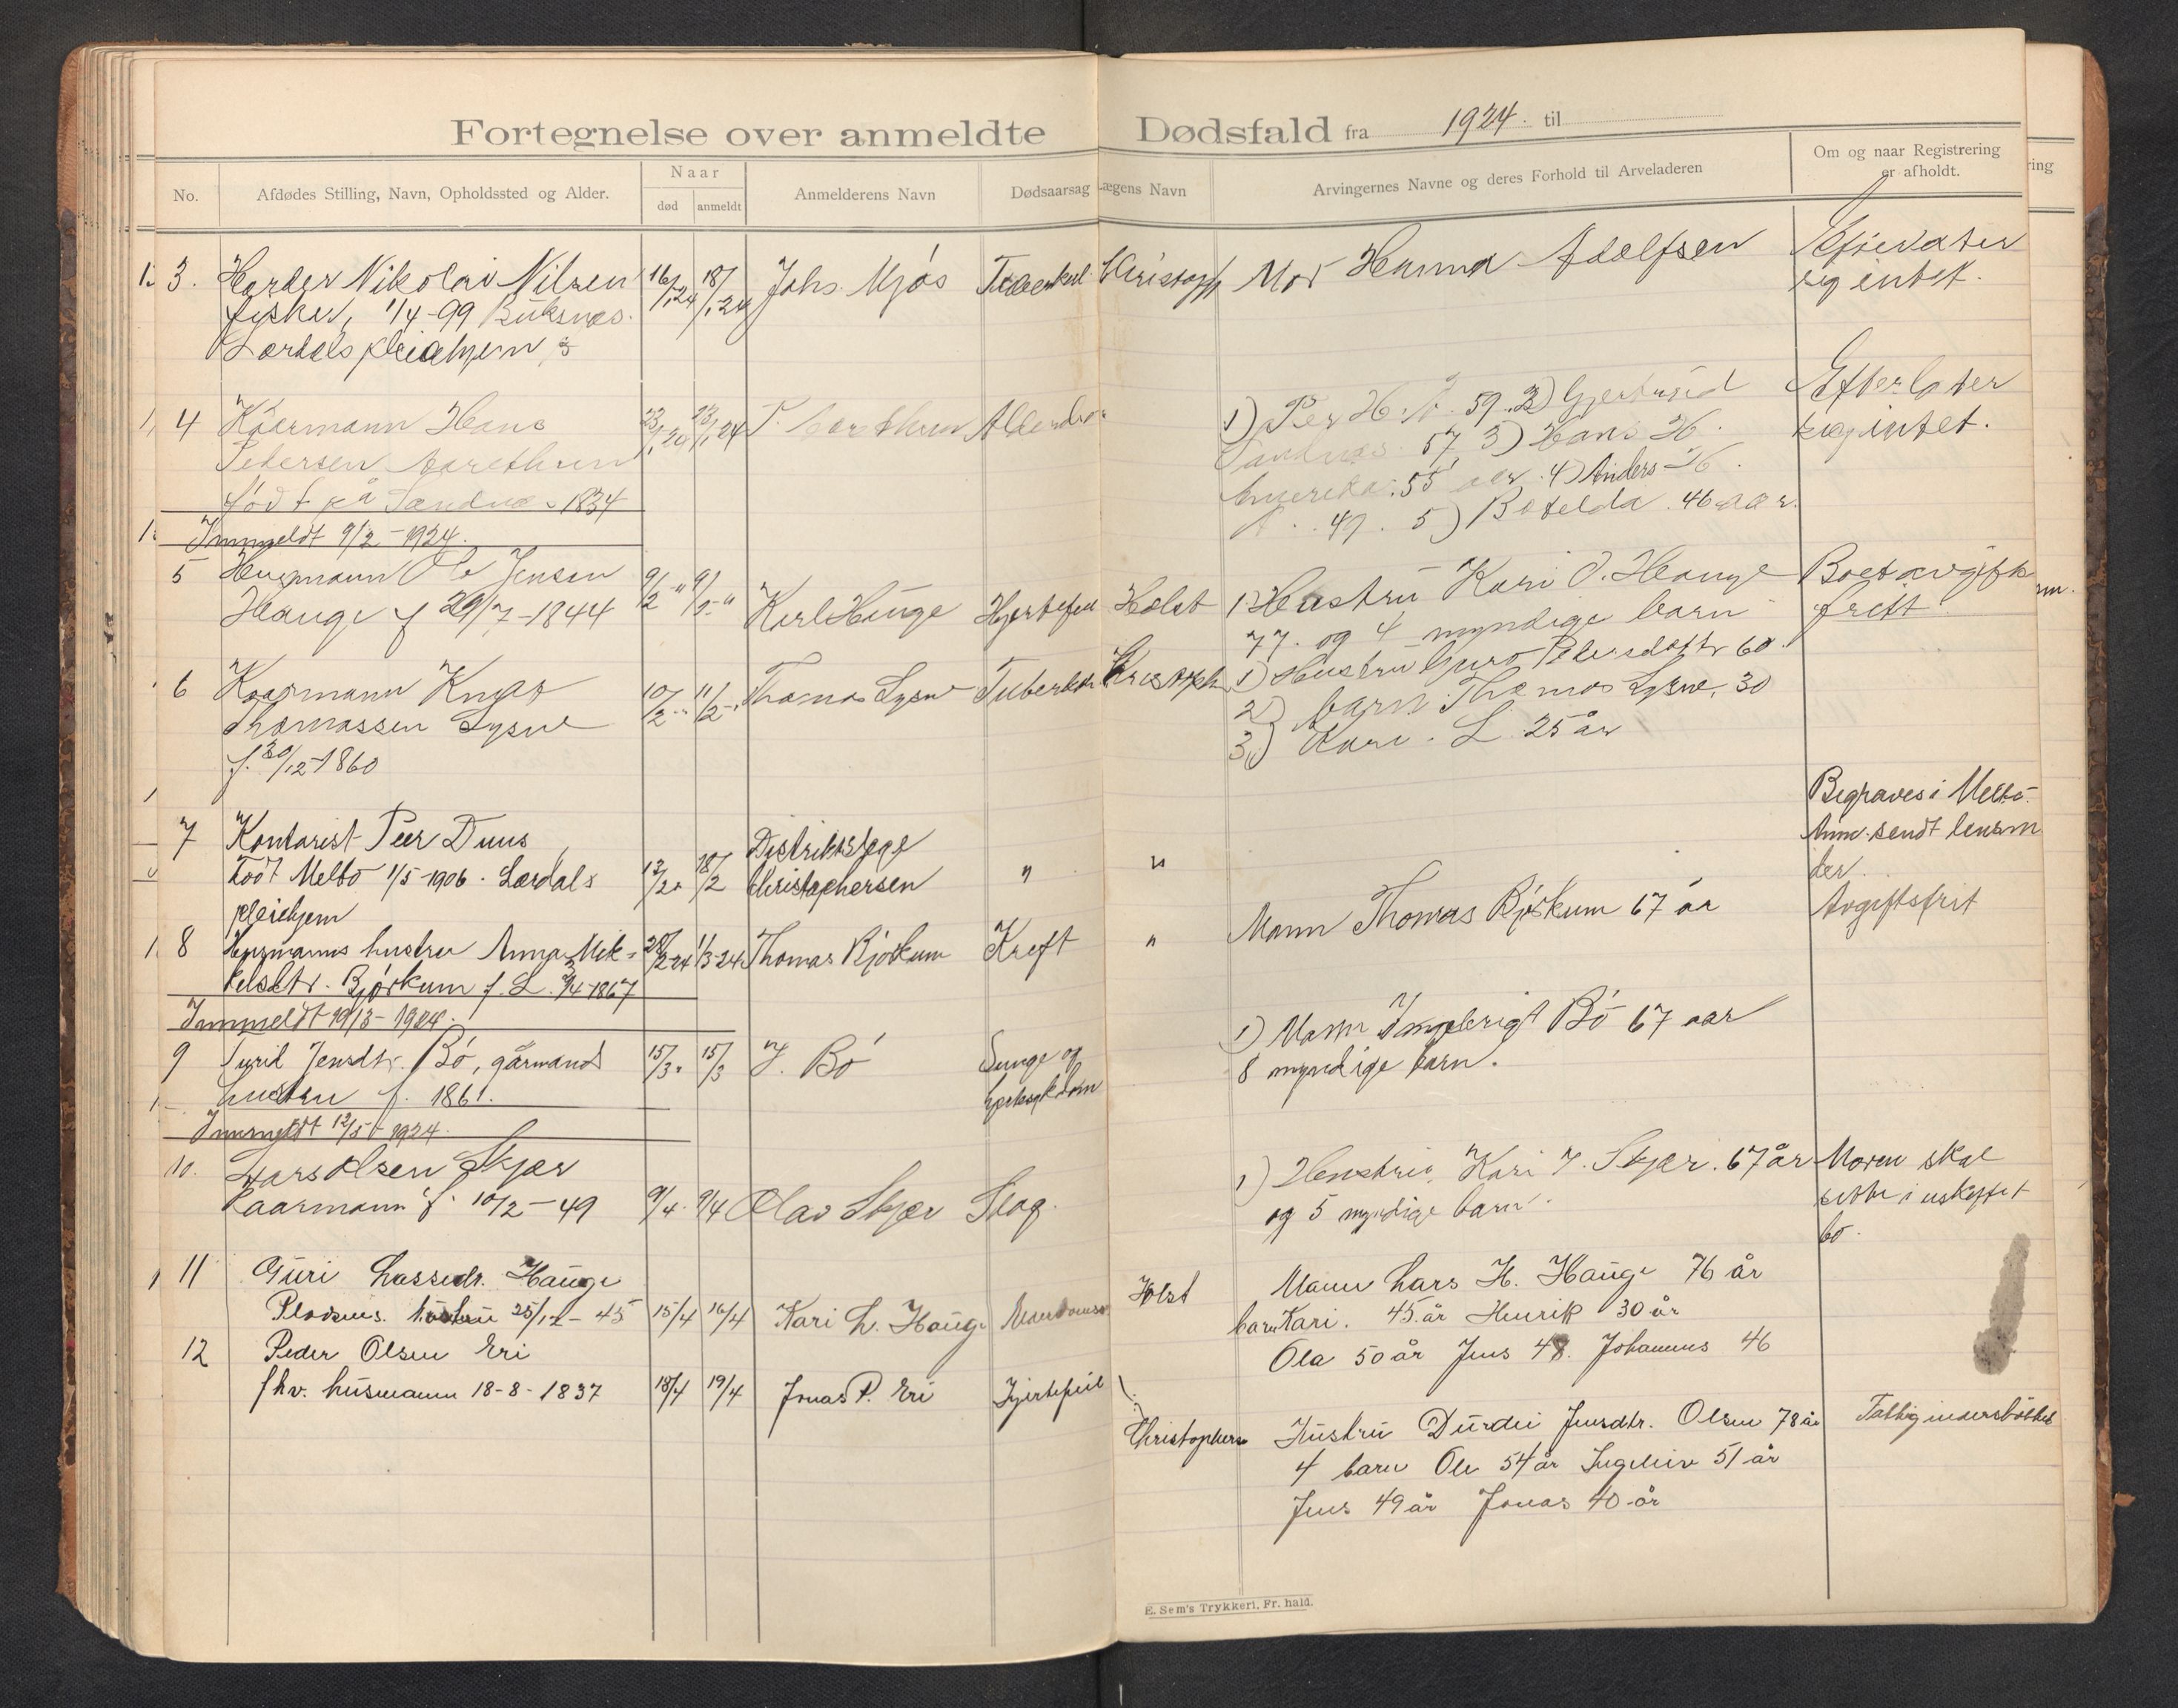 Fortegnelse over anmeldte Dødsfald fra 1924. til
No.
Afdødes Stilling, Navn, Opholdssted og Alder.
Naar
død
anmeldt
Anmelderens Navn
Dødsaarsag
Lægens Navn
Arvingernes Navne og deres Forhold til Arveladeren
Om og naar Registrering
er afholdt.
ring
3. Harder Nikolai Nilsen 16/1-24 18/1-24 Johs. Mjøs Mor Hanna Adolfsen
fisker, 1/4-99 Buksnes. sig intet.
Lærdals pleiehjem
4 Kaarmann Hans 23/1-24 Efterlater
Pedersen 1) Per H. 59. 2) Gjertrud
født på 1834 57 3) Hans H. sig intet.
Amerika. 55 aar. 4) Anders H.
49. 5) Botelda. 46 aar.
Innmeldt 9/2-1924.
5 Husmann Ole Jensen 9/2 Karl Hauge Hjertefeil Holst 1) Hustru Kari O. Hauge Boet avgifts
Hauge f 29/7-1844 77. og 4 myndige barn fritt
6 Kaarmann Knut 10/2 11/2 Thomas Lysne 1) Hustru Guro Pedersdatter 60.
Thomassen Lysne 2) barn Thomas Lysne, 30
f. 30/12-1860 3) Kari. L. 25 år
7 Kontorist Peer Duus Distriktslæge Begraves i Melbo.
Født Melbo 1/5-1906. Lærdals 13/2 18/2 Christophersen " " Anm. sendt lensm
pleiehjem der.
8 Husmanns hustru Anna Mik- 28/2-24 1/3-24 Thomas Bjørkum Kreft " Mann Thomas Bjørkum 67 år Avgiftsfrit
kelsdtr. Bjørkum f. L. 1867
Innmeldt 19/3-1924.
9 Synd Jensdtr. Bø, gårmands 15/3 15/3 I. Bø Lunge og 1) Mann Ingebrigt Bø 67 aar
hustru f. 1861. 8 myndige barn.
Innmeldt 12/5-1924.
10. Lars Olsen Skjær 1) Hustru, Kari J. Skjær. 67 år Moren skal
Kaarmann f. 10/2-49 9/4 9/4 Olav Skjær Slag. og 5 myndige barn. sitte i uskiftet
bo.
11 Guri Lassedr. Hauge Holst Mann Lars H. Hauge 76 år
hustru 25/12-45 15/4 16/4 Kari L. Hauge barn Kari. 45 år Henrik 30 år
Ola 50 år Jens 48. Johannes 46
12 Peder Olsen Eri
fhv. husmann 18-8-1837 18/4 19/4 Jonas P. Eri Hjertefeil Christophers Hustru Durdei Jensdtr. Olsen 78 år
4 barn Ole 54 år Ingeleiv 51 år
Jens 49 år Jonas 40 år
E. Sem's Trykkeri, Fr. hald.